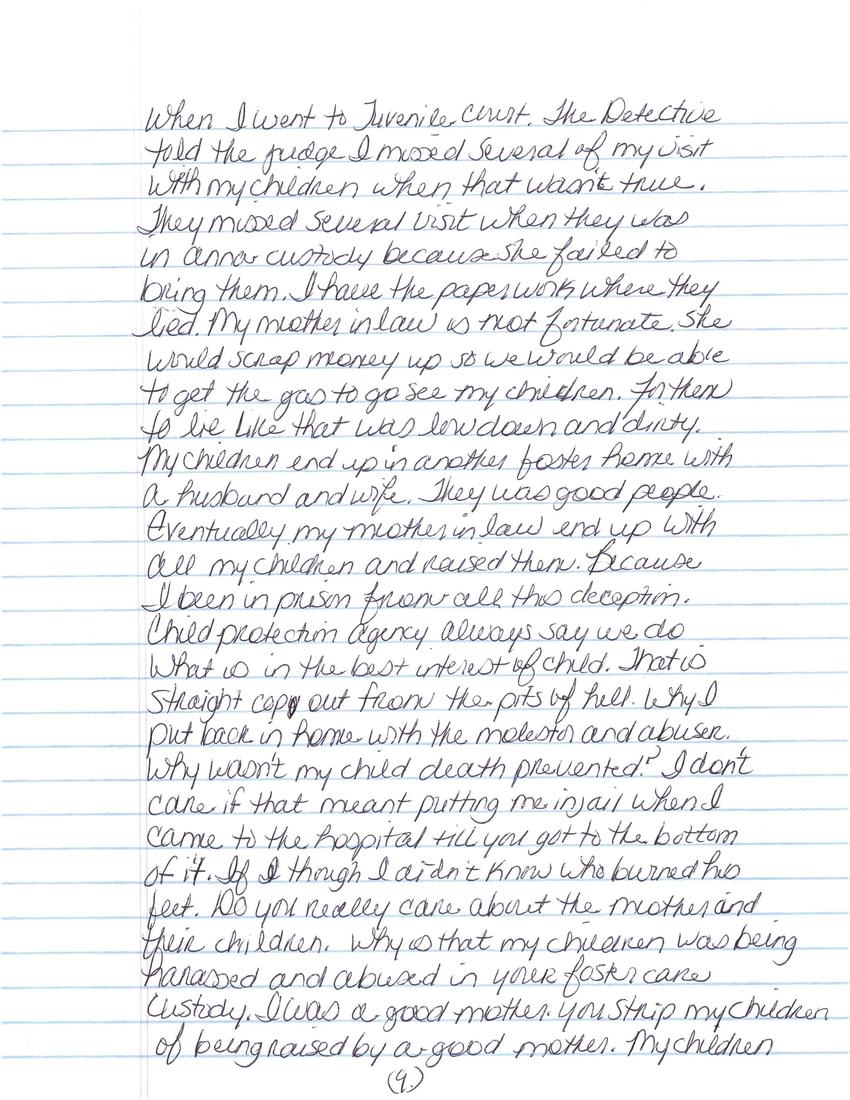 When I went to Juvenile court. The Detective
told the judge I missed several of my visit
with my children when that wasn't true.
They missed several visit when they was
in anna custody because she failed to
bring them. I have the paperwork where they
lied. My mother in law is not fortunate. She
would scrap money up so we would be able
to get the gas to go see my children. For them
to lie like that was lowdown and dirty.
My children end up in another foster home with
a husband and wife. They was good people.
Eventually my mother in law end up with
all my children and raised them. Because
I been in prison from all this deception.
Child protection agency always say we do
what is in the best interest of child. That is
straight copy out from the pits of hell. Why I
put back in home with the molestor and abuser.
Why wasn't my child death prevented? I don't
care if that meant putting me in jail when I
came to the hospital till you got to the bottom
of it. If I though I didn't know who burned his
feet. Do you really care about the mother and
their children. Why is that my children was being
harassed and abused in your foster care
custody. I was a good mother. You strip my children
of being raised by a good mother. My children
(9.)